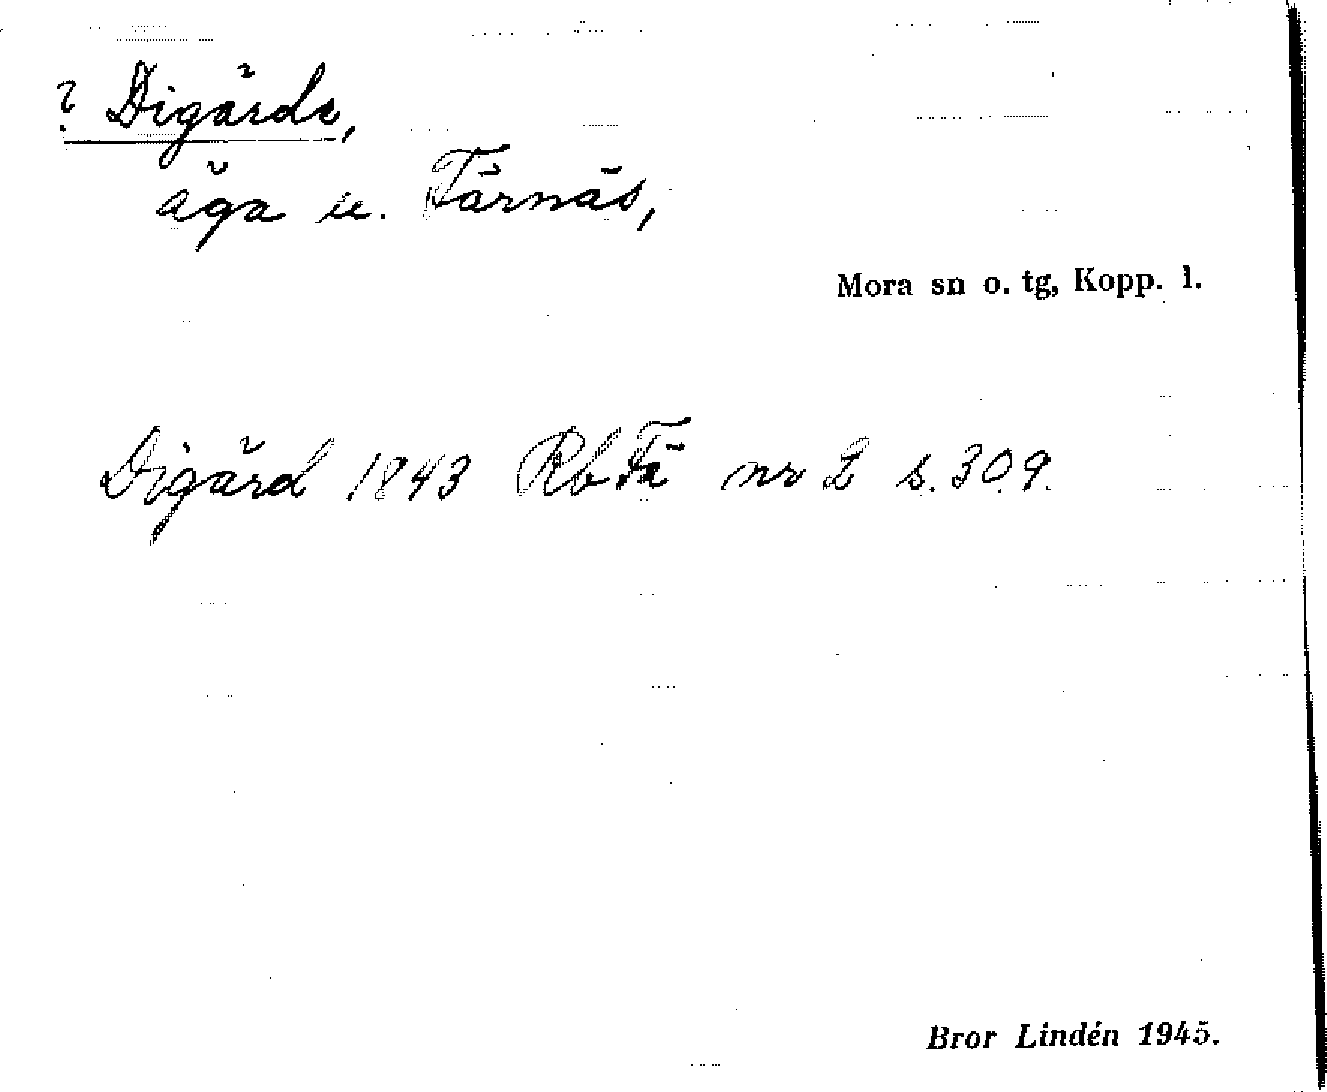 ? Digärde,
äga u. Färnäs,
Mora sn o. tg, Kopp. l.
Digärd 1843 Rb Fä nr 2 s. 309.
Bror Lindén 1945.